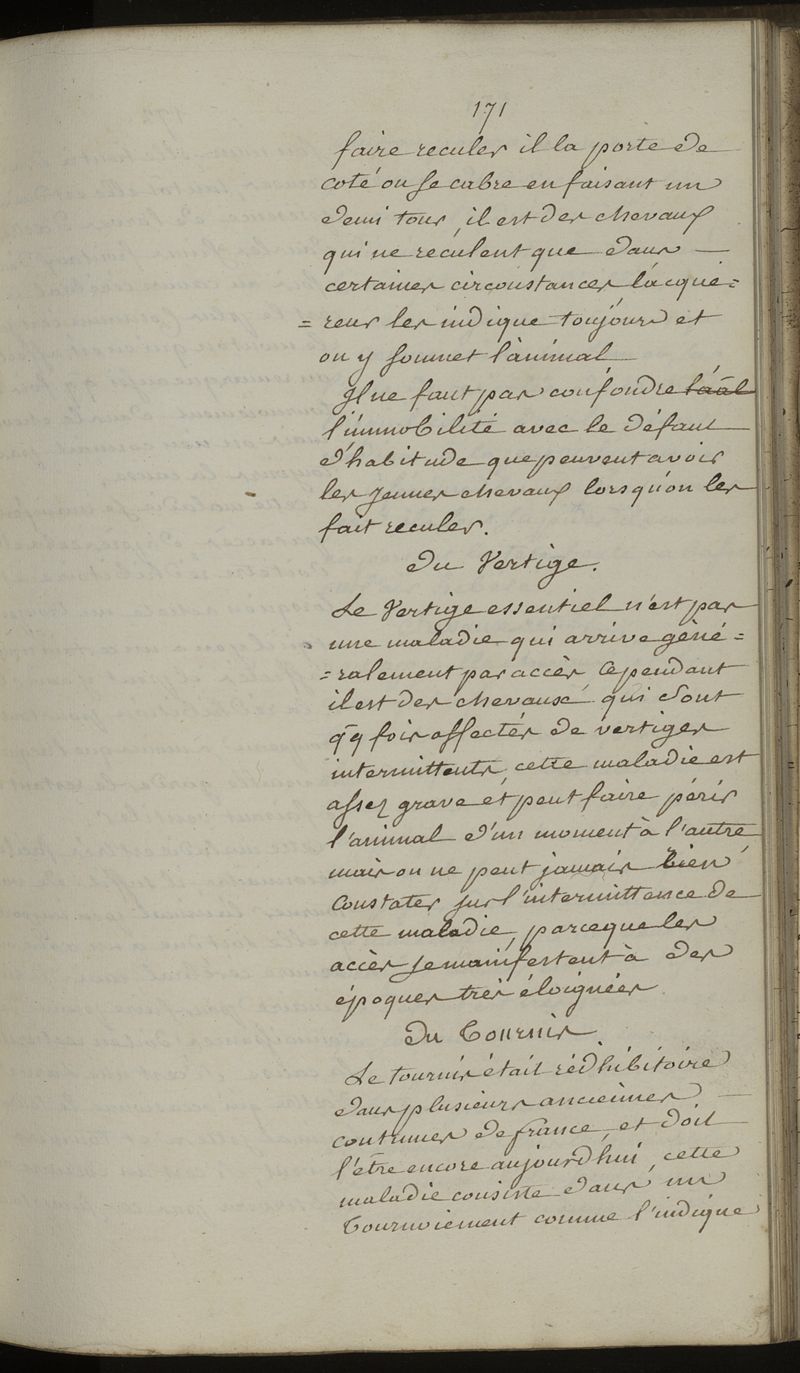 171
faire reculer il la porte de
coté ou se cabre en faisant un
demi tour, il est des chevaux
qui ne reculent que dans —
certaines circonstances l'acqué=
= reur les indique toujours et
on y soumet l'animal
Il ne faut pas confondre
l'immobilité avec le défaut
d'habitude que peuvent avoir
les jeunes chevaux lorsqu'on les
fait reculer.
Du Vertige.
Le Vertige essentiel n'est pas
une maladie qui arrive géné=
=ralement par accès cependant
il est des chevaux qui sont
qq fois affectés de vertiges
intermittents, cette maladie est
assez grave et peut faire périr
l'animal d'un moment à l'autre
mais on ne peut jamais bien
Constater sur l'intermittence de
cette maladie, parceque les
accès se manifestent à des
époques très éloignées
Du Tournis.
Le tournis était rédhibitoire
dans plusieurs anciennes —
coutumes de france, et doit
l'être encore aujourd'hui, cette
maladie consiste dans un
Tournoiement comme l'indique